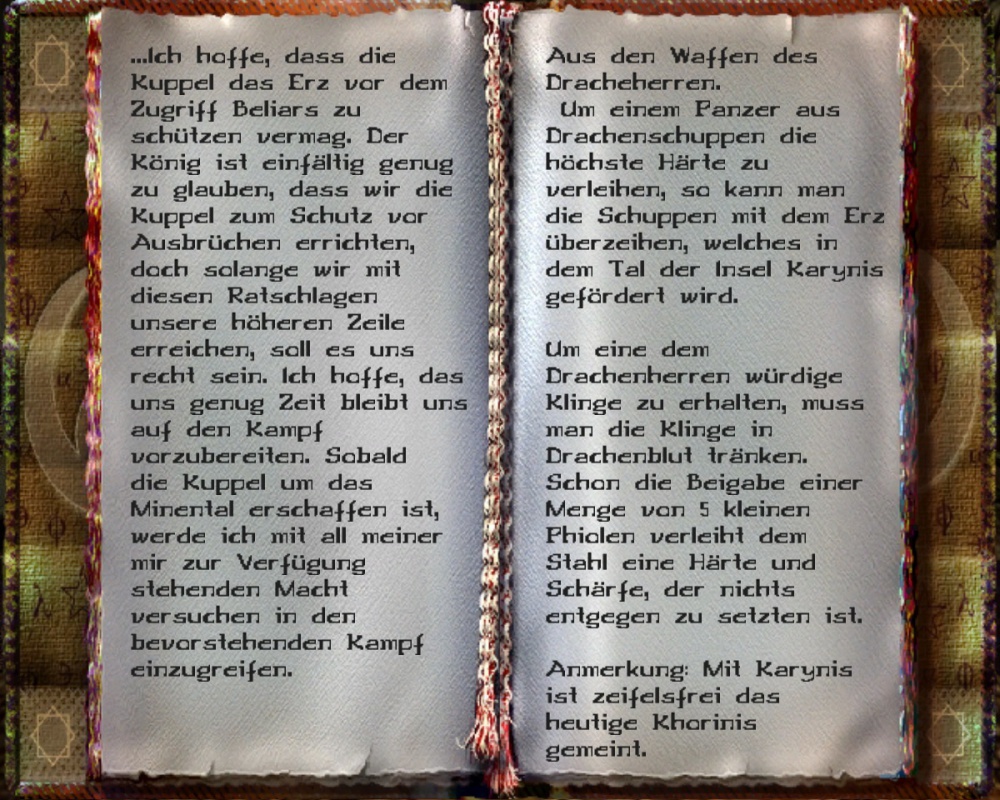 ...Ich hoffe, dass die
Kuppel das Erz vor dem
Zugriff Beliars zu
schützen vermag. Der
König ist einfältig genug
zu glauben, dass wir die
Kuppel zum Schutz vor
Ausbrüchen errichten,
doch solange wir mit
diesen Ratschlagen
unsere höheren Zeile
erreichen, soll es uns
recht sein. Ich hoffe, das
uns genug Zeit bleibt uns
auf den Kampf
vorzubereiten. Sobald
die Kuppel um das
Minental erschaffen ist,
werde ich mit all meiner
mir zur Verfügung
stehenden Macht
versuchen in den
bevorstehenden Kampf
einzugreifen.
Aus den Waffen des
Dracheherren.
Um einem Panzer aus
Drachenschuppen die
höchste Härte zu
verleihen, so kann man
die Schuppen mit dem Erz
überzeihen, welches in
dem Tal der Insel Karynis
gefördert wird.
Um eine dem
Drachenherren würdige
Klinge zu erhalten, muss
man die Klinge in
Drachenblut tränken.
Schon die Beigabe einer
Menge von 5 kleinen
Phiolen verleiht dem
Stahl eine Härte und
Schärfe, der nichts
entgegen zu setzten ist.
Anmerkung: Mit Karynis
ist zeifelsfrei das
heutige Khorinis
gemeint.